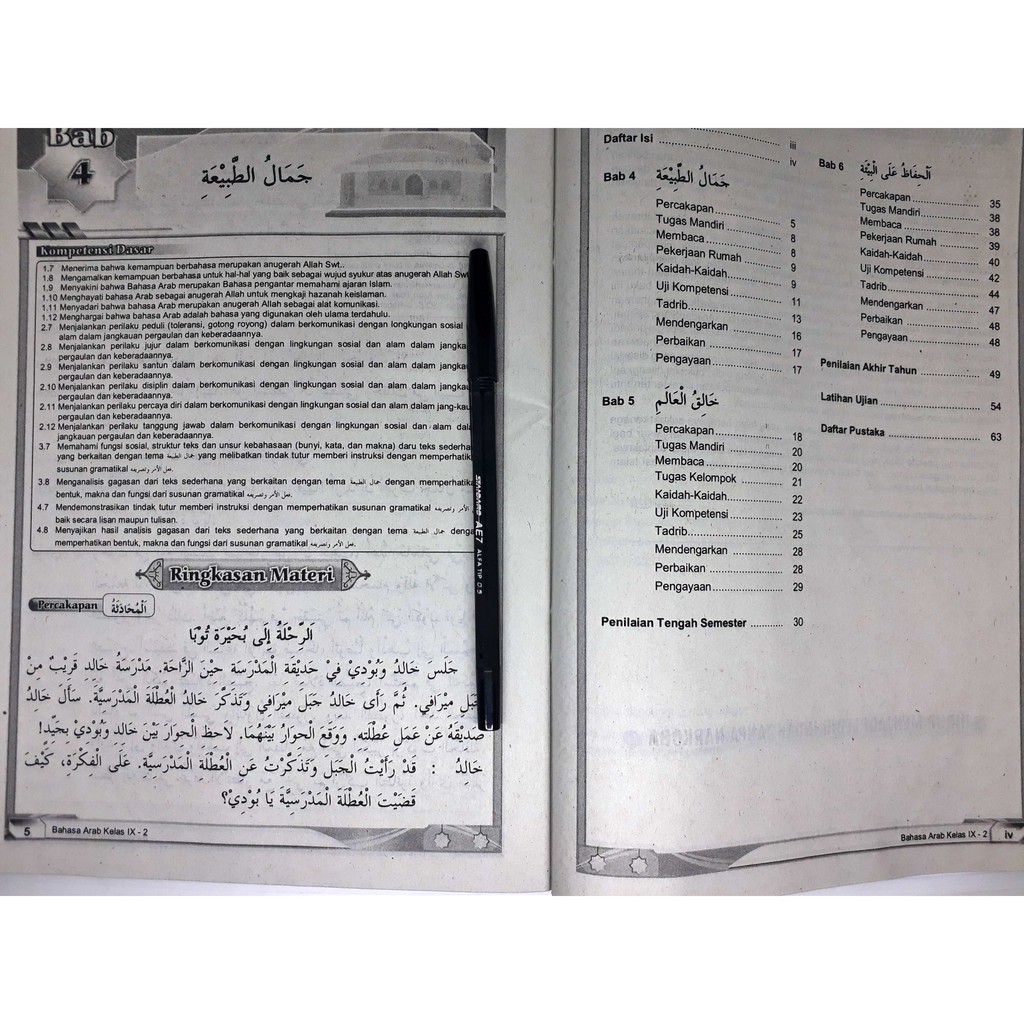 Bab
4
جَمَالُ الطَّبِيْعَةِ
Kompetensi Dasar
1.7 Menerima bahwa kemampuan berbahasa merupakan anugerah Allah Swt..
1.8 Mengamalkan kemampuan berbahasa untuk hal-hal yang baik sebagai wujud syukur atas anugerah Allah Swt
1.9 Menyakini bahwa Bahasa Arab merupakan Bahasa pengantar memahami ajaran Islam.
1.10 Menghayati bahasa Arab sebagai anugerah Allah untuk mengkaji hazanah keislaman.
1.11 Menyadari bahwa bahasa Arab merupakan anugerah Allah sebagai alat komunikasi.
1.12 Menghargai bahwa bahasa Arab adalah bahasa yang digunakan oleh ulama terdahulu.
2.7 Menjalankan perilaku peduli (toleransi, gotong royong) dalam berkomunikasi dengan longkungan sosial
alam dalam jangkauan pergaulan dan keberadaannya.
2.8 Menjalankan perilaku jujur dalam berkomunikasi dengan lingkungan sosial dan alam dalam jangka
pergaulan dan keberadaannya.
2.9 Menjalankan perilaku santun dalam berkomunikasi dengan lingkungan sosial dan alam dalam jangka
pergaulan dan keberadaannya.
2.10 Menjalankan perilaku disiplin dalam berkomunikasi dengan lingkungan sosial dan alam dalam jangka
pergaulan dan keberadaannya.
2.11 Menjalankan perilaku percaya diri dalam berkomunikasi dengan lingkungan sosial dan alam dalam jang-kau
pergaulan dan keberadaannya.
2.12 Menjalankan perilaku tanggung jawab dalam berkomunikasi dengan lingkungan sosial dan alam dala
jangkauan pergaulan dan keberadaannya.
3.7 Memahami fungsi sosial, struktur teks dan unsur kebahasaan (bunyi, kata, dan makna) daru teks sederha
yang berkaitan dengan tema جمال الطبيعة yang melibatkan tindak tutur memberi instruksi dengan memperhatik
susunan gramatikal فعل الأمر وتصريفه.
3.8 Menganalisis gagasan dari teks sederhana yang berkaitan dengan tema جمال الطبيعة dengan memperhatika
bentuk, makna dan fungsi dari susunan gramatikal فعل الأمر وتصريفه.
4.7 Mendemonstrasikan tindak tutur memberi instruksi dengan memperhatikan susunan gramatikal فعل الأمر وتصريفه
baik secara lisan maupun tulisan.
4.8 Menyajikan hasil analisis gagasan dari teks sederhana yang berkaitan dengan tema جمال الطبيعة denga
memperhatikan bentuk, makna dan fungsi dari susunan gramatikal فعل الأمر وتصريفه.
Ringkasan Materi
Percakapan اَلْمُحَادَثَةُ
اَلرِّحْلَةُ إِلَى بُحَيْرَةِ تُوْبَا
جَلَسَ خَالِدُ وَبُوْدِيْ فِيْ حَدِيْقَةِ الْمَدْرَسَةِ حِيْنَ الرَّاحَةِ. مَدْرَسَةُ خَالِدِ قَرِيْبٌ مِنْ
جَبَلِ مِيْرَافِي. ثُمَّ رَأَى خَالِدُ جَبَلَ مِيْرَافِي وَتَذَكَّرَ خَالِدُ الْعُطْلَةَ الْمَدْرَسِيَّةَ. سَأَلَ خَالِدُ
صَدِيْقَهُ عَنْ عَمَلِ عُطْلَتِهِ. وَوَقَعَ الْحِوَارُ بَيْنَهُمَا. لَاحِظْ الْحِوَارَ بَيْنَ خَالِدِ وَبُوْدِيْ بِجَيِّدٍ!
خَالِدُ : قَدْ رَأَيْتُ الْجَبَلَ وَتَذَكَّرْتُ عَنِ الْعُطْلَةِ الْمَدْرَسِيَّةِ. عَلَى الْفِكْرَةِ، كَيْفَ
قَضَيْتَ الْعُطْلَةَ الْمَدْرَسِيَّةَ يَا بُوْدِيْ؟
5 Bahasa Arab Kelas IX - 2
SNOWMAN AE7 ALFATIP 0.5
iii
Daftar Isi .......... iv
Bab 4 جَمَالُ الطَّبِيْعَةِ
Percakapan .......... 5
Tugas Mandiri .......... 8
Membaca .......... 8
Pekerjaan Rumah .......... 9
Kaidah-Kaidah .......... 9
Uji Kompetensi .......... 11
Tadrib .......... 13
Mendengarkan .......... 16
Perbaikan .......... 17
Pengayaan .......... 17
Bab 5 خَالِقُ الْعَالَمِ
Percakapan .......... 18
Tugas Mandiri .......... 20
Membaca .......... 20
Tugas Kelompok .......... 21
Kaidah-Kaidah .......... 22
Uji Kompetensi .......... 23
Tadrib .......... 25
Mendengarkan .......... 28
Perbaikan .......... 28
Pengayaan .......... 29
Penilaian Tengah Semester .......... 30
Bab 6 اَلْحِفَاظُ عَلَى الْبِيْئَةِ
Percakapan .......... 35
Tugas Mandiri .......... 38
Membaca .......... 38
Pekerjaan Rumah .......... 39
Kaidah-Kaidah .......... 40
Uji Kompetensi .......... 42
Tadrib .......... 44
Mendengarkan .......... 47
Perbaikan .......... 48
Pengayaan .......... 48
Penilaian Akhir Tahun .......... 49
Latihan Ujian .......... 54
Daftar Pustaka .......... 63
Bahasa Arab Kelas IX - 2 iv